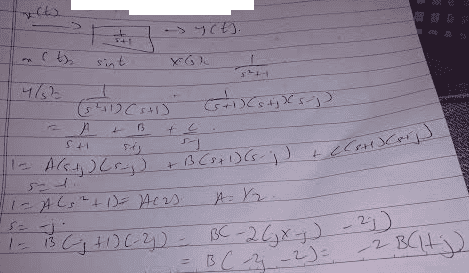 x(t) → [1/(s+1)] → y(t).
x(t) = sint X(s) = 1/(s²+1)
Y(s) = 1/((s²+1)(s+1)) 1/((s+1)(s+j)(s-j))
= A/(s+1) + B/(s+j) + C/(s-j)
1 = A(s+j)(s-j) + B(s+1)(s-j) + C(s+1)(s+j)
s = -1.
1 = A(s²+1) = A(2) A = 1/2
s = -j
1 = B(-j+1)(-2j) = B(-2(jx-j) - 2j)
= B(-2j-2) = -2B(1+j)